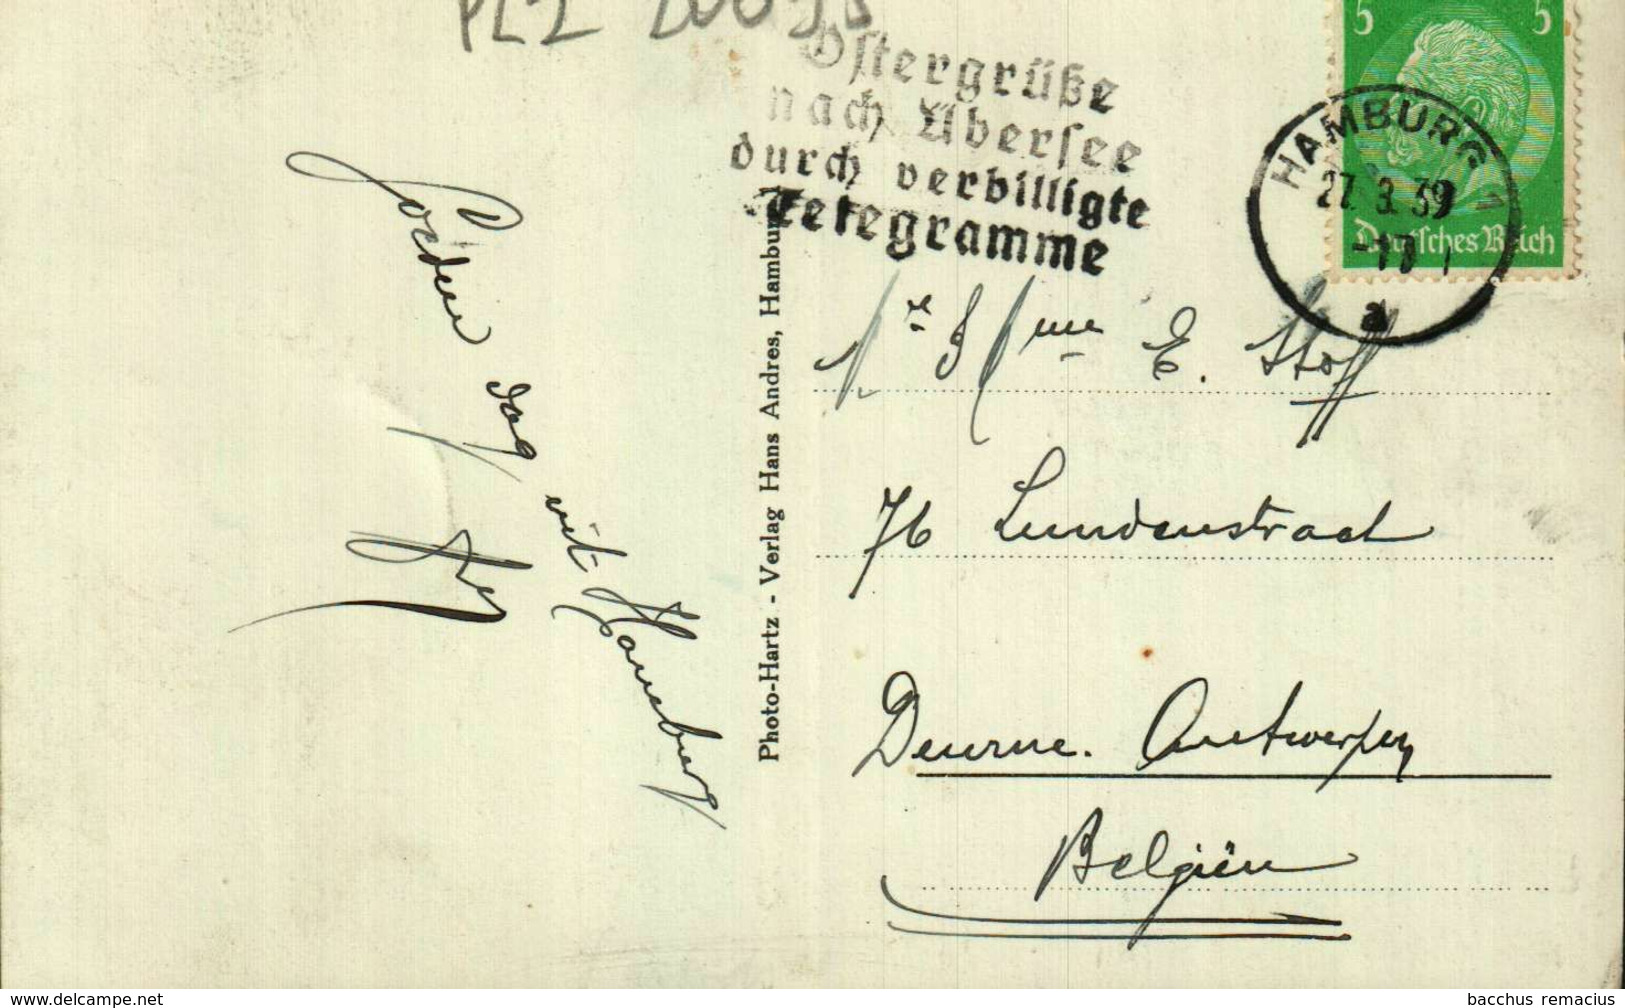 PLZ
Ostergrüße
nach Übersee
durch verbilligte
Telegramme
5 5
HAMBURG 1
27. 3. 39
a
Deutsches Reich
Goeden dag
uit Hamburg
Photo-Hartz - Verlag Hans Andres, Hamburg
E. Stoff
76 Lundenstraat
Deurne. Antwerpen
Belgiën
www.delcampe.net
bacchus remacius